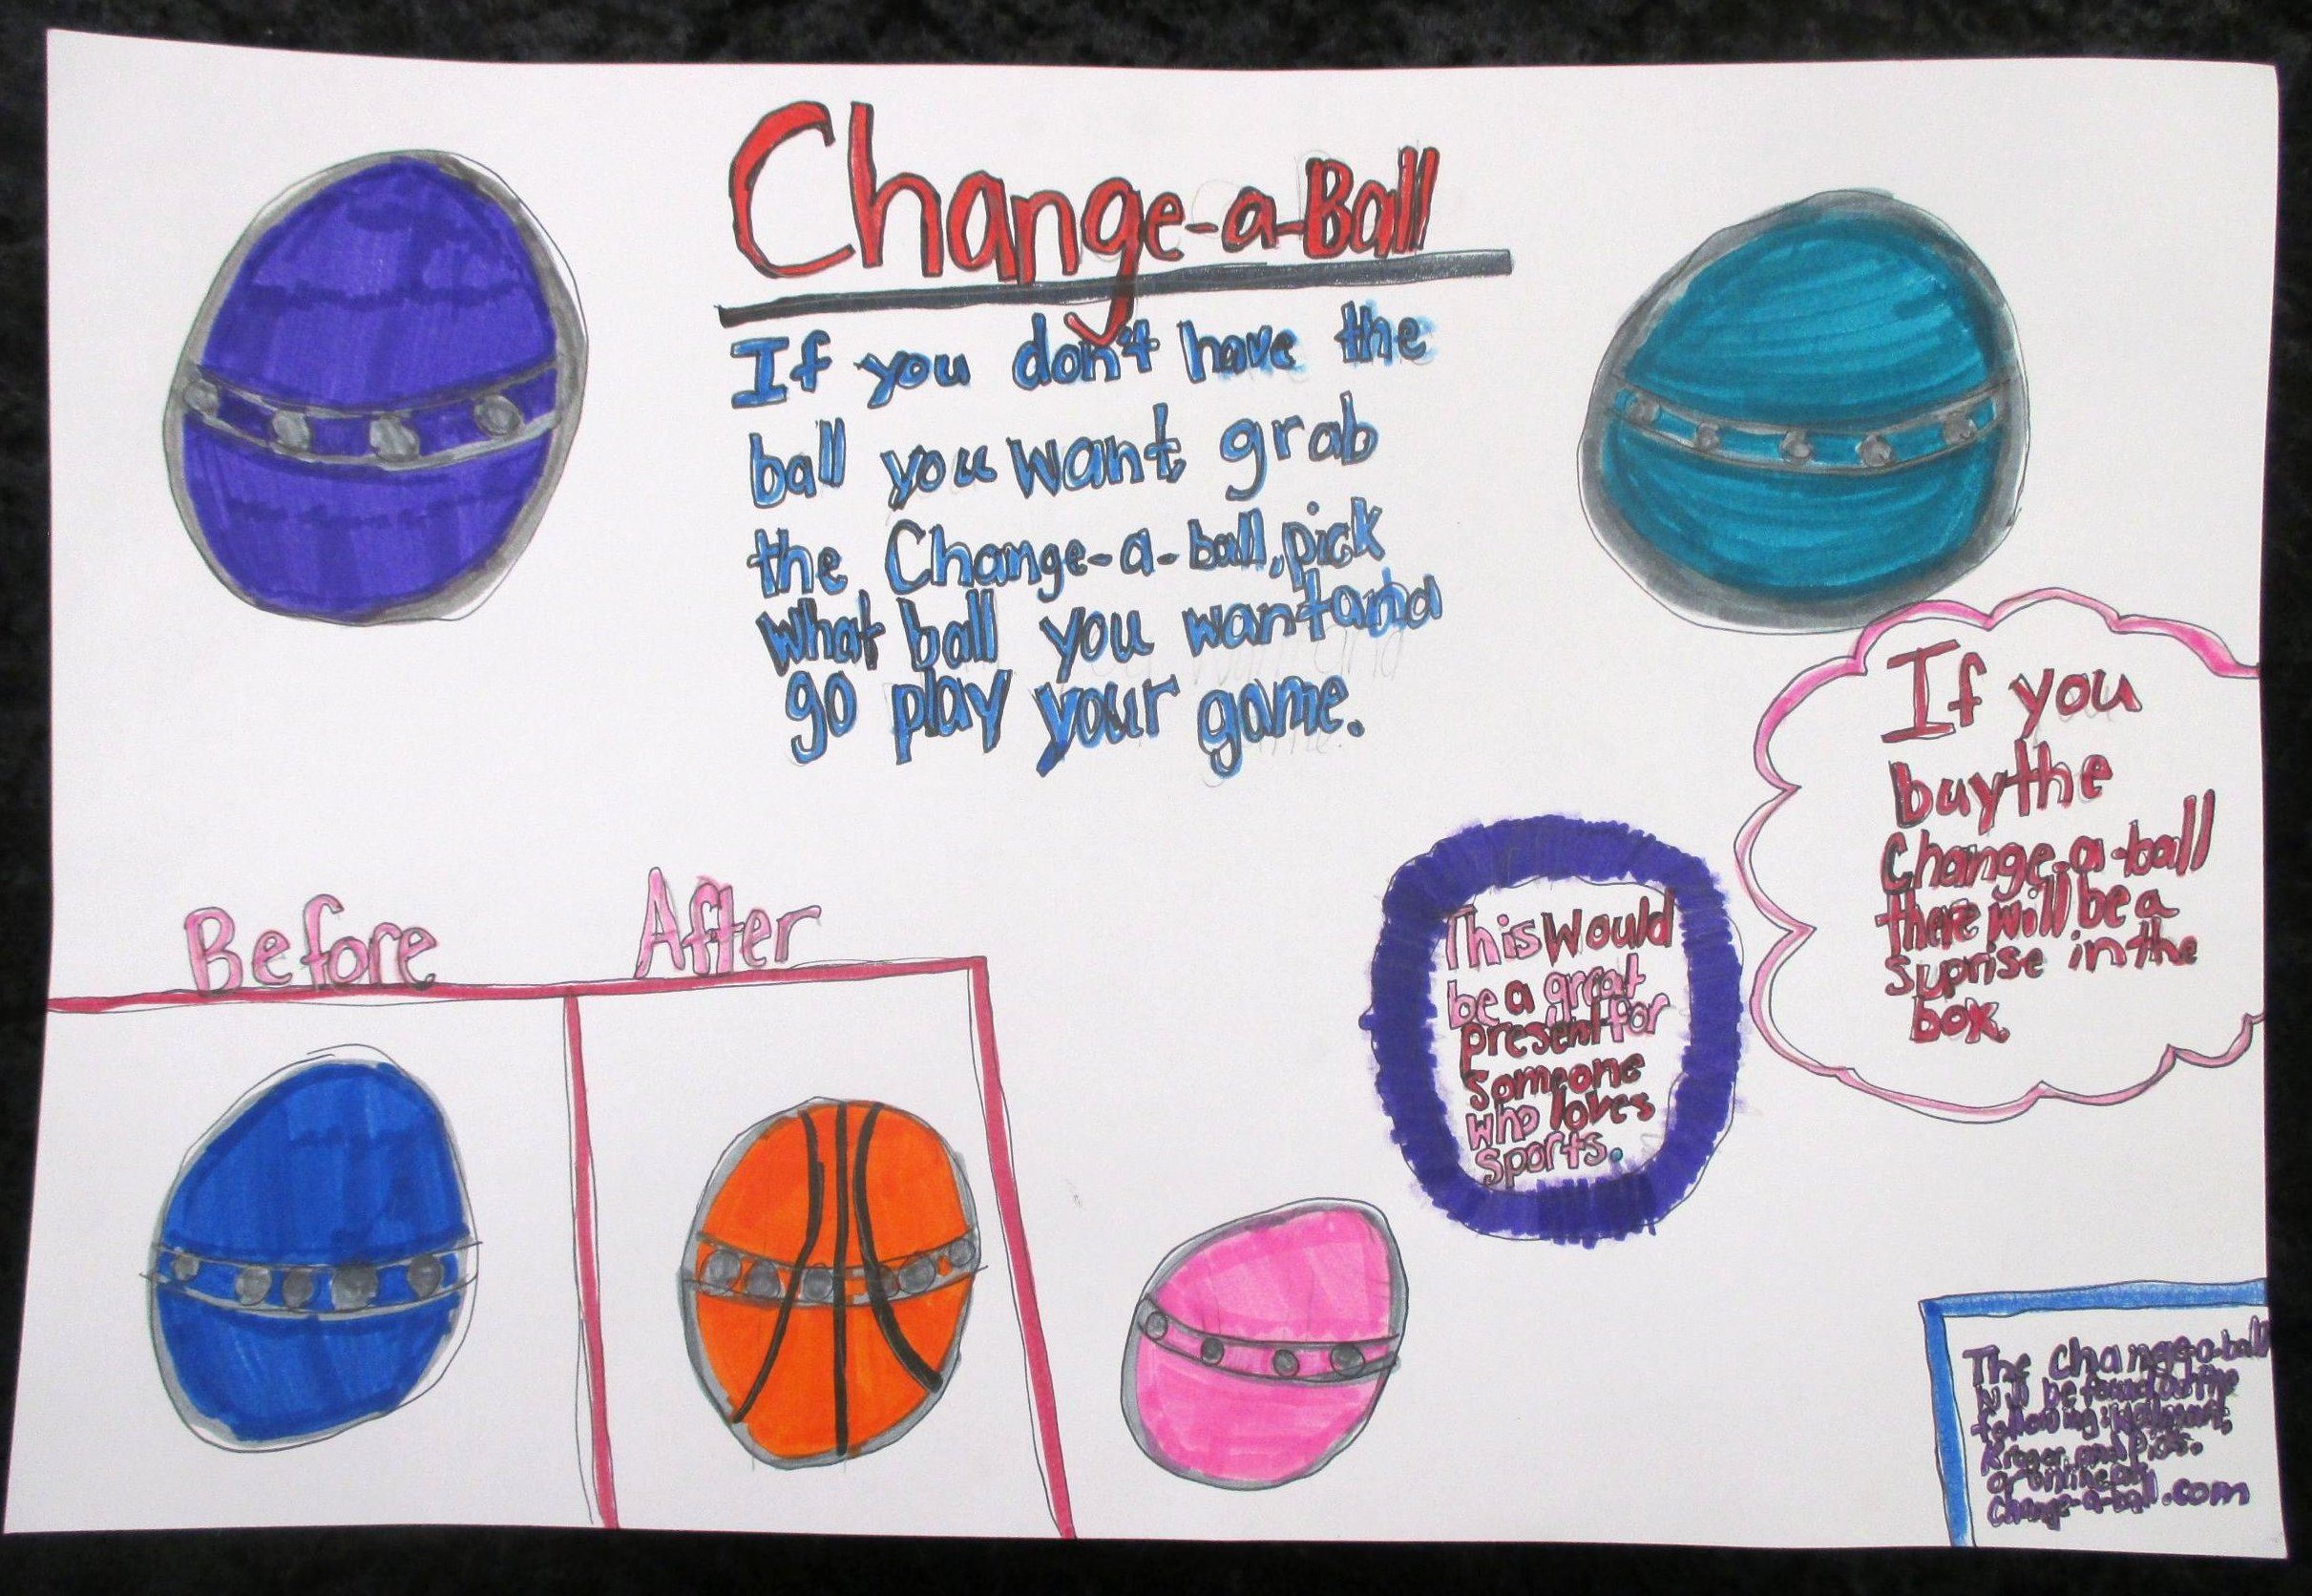 Change-a-Ball
If you don't have the
ball you want grab
the Change-a-ball, pick
what ball you want and
go play your game.
If you
buy the
Change-a-ball
there will be a
suprise in the
box.
This Would
be a great
present for
someone
who loves
sports.
Before After
The change-a-ball
will be found at the
following: Walmart,
Kroger, and Pics.
or online at
Change-a-ball.com